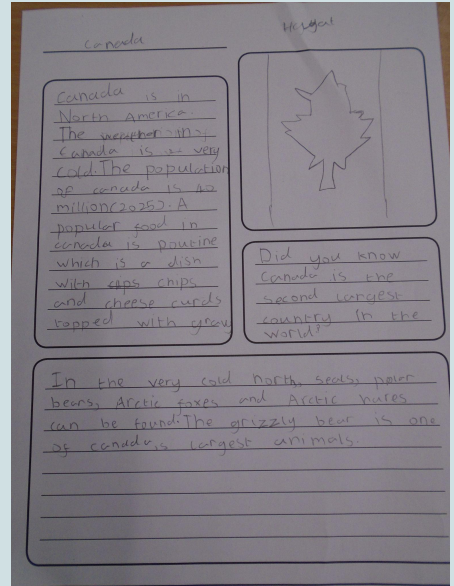 Canada
Canada is in
North America.
The weather in
Canada is very
cold. The population
of canada is 40
million(2025). A
popular food in
canada is poutine
which is a dish
with chips
and cheese curds
topped with gravy
Did you know
Canada is the
second largest
country in the
world?
In the very cold north, seals, polar
bears, Arctic foxes and Arctic hares
can be found. The grizzly bear is one
of canada,s largest animals.